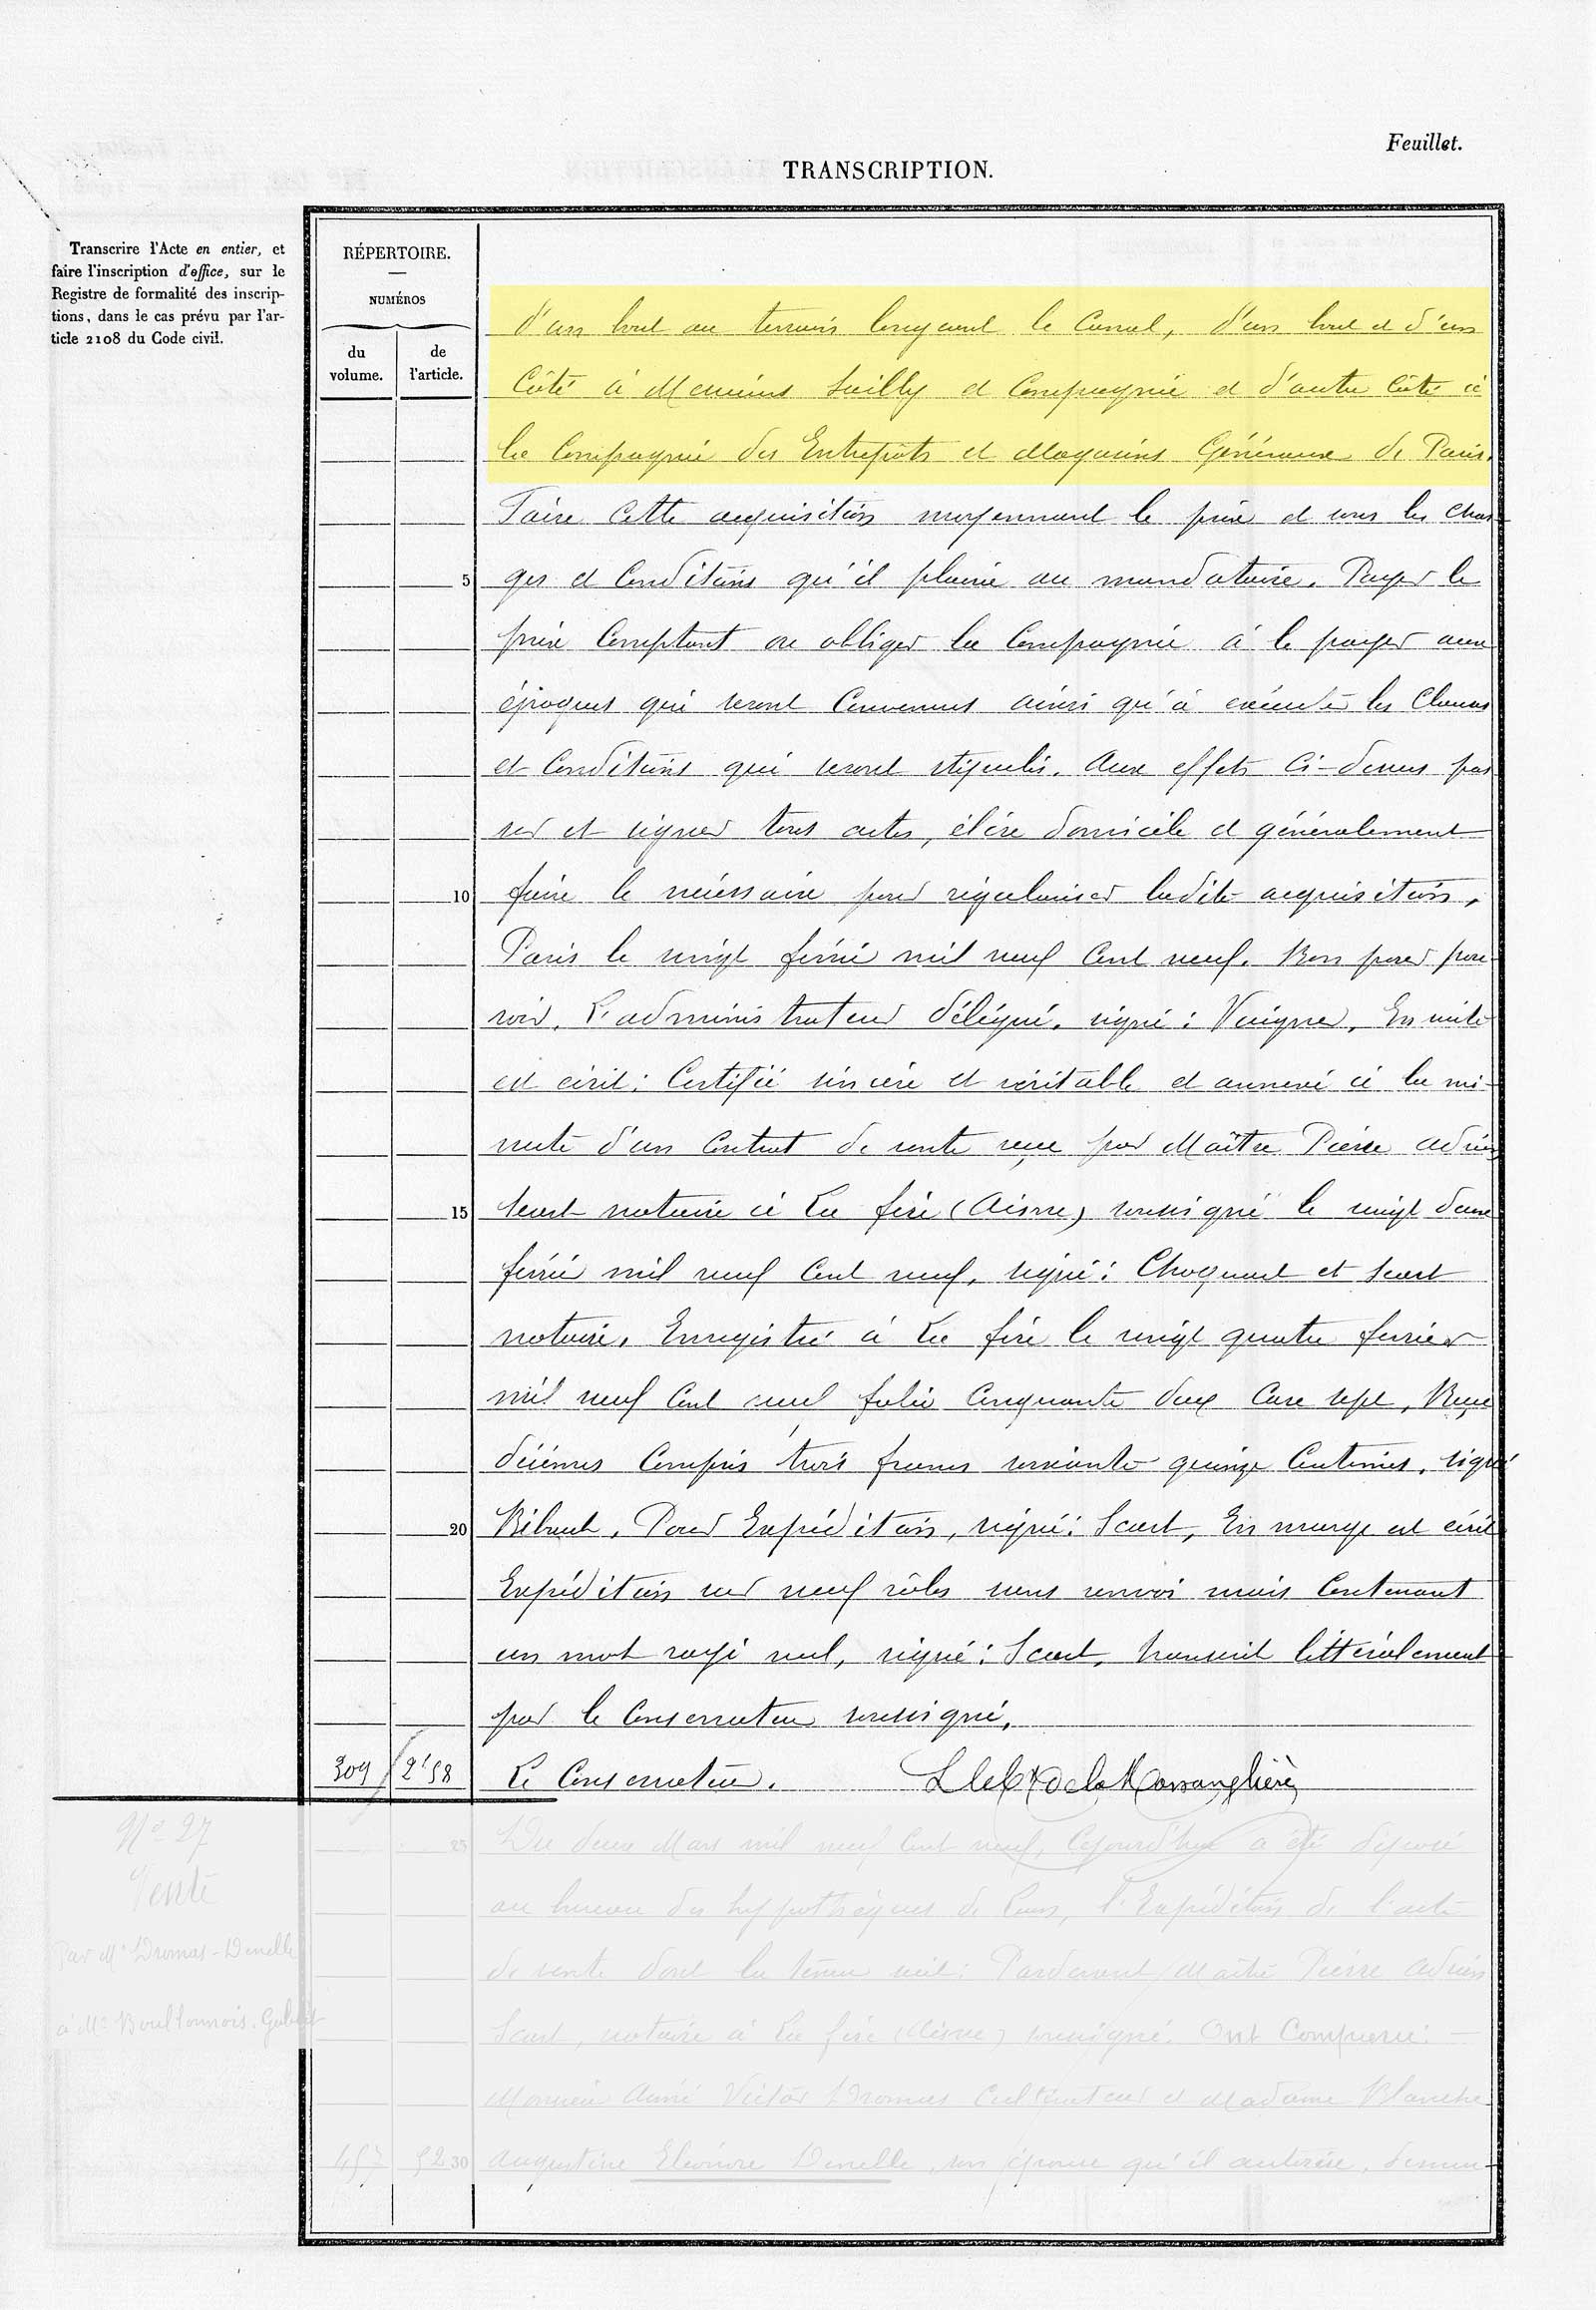 Feuillet.
TRANSCRIPTION.
Transcrire l'Acte en entier, et
faire l'inscription d'office, sur le
Registre de formalité des inscrip-
tions, dans le cas prévu par l'ar-
ticle 2108 du Code civil.
RÉPERTOIRE.
NUMÉROS
du
volume.
de
l'article.
d'un bout au terrain longeant le Canal, d'un bout et d'un
Côté à Messieurs Suilly et Compagnie et d'autre Côté à
la Compagnie des Entrepôts et Magasins Généraux de Paris.
Faire cette acquisition moyennant le prix et sous les char-
5 ges et Conditions qu'il plaira au mandataire. Payer le
prix Comptant ou obliger la Compagnie à le payer aux
époques qui seront Convenues ainsi qu'à exécuter les Clauses
et Conditions qui seront stipulés. Aux effets Ci-dessus pas
ser et signer tous actes, élire domicile et généralement
10 faire le nécessaire pour régulariser ladite acquisition,
Paris le vingt février mil neuf Cent neuf. Bon pour pou-
voir. L'administrateur délégué. signé: Vuigner. En suite
est écrit: Certifié sincère et véritable et annexé à la mi-
nute d'un Contrat de vente reçu par Maître Pierre adrien
15 Scart notaire à La fère (Aisne) soussigné le vingt deux
février mil neuf Cent neuf, signé: Choquart et Scart
notaire. Enregistré à La fère le vingt quatre février
mil neuf Cent neuf folio Cinquante deux Case sept, Reçu
décimes Compris trois francs soixante quinze Centimes. signé
20 Pour Expédition, signé: Scart, En marge est écrit
Expédition sur neuf rôles sans renvoi mais Contenant
un mot rayé nul, signé: Scart, transcrit littéralement
par le Conservateur soussigné.
309 258 Le Conservateur.
N° 27
Vente
Par Mr Dromas-Denelle
à Mr Boullonnois-
25 Du deux Mars mil neuf Cent neuf, Cejourd'hui a été déposé
au bureau des hypothèques de Laon, l'Expédition de l'acte
de vente dont la teneur suit: Pardevant Maître Pierre Adrien
Scart, notaire à La fère (Aisne) soussigné. Ont Comparu:
Monsieur Aimé Victor Dromas Cultivateur et Madame Blanche
457 52 30 Augustine Eléonore Denelle son épouse qu'il autorise, demeu-